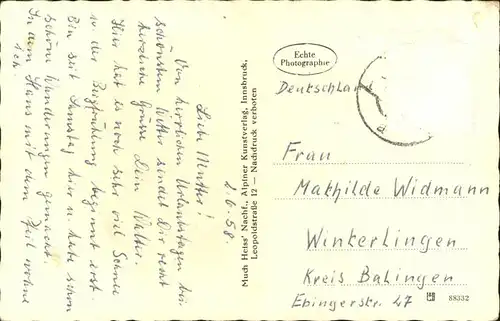 2.6.58.
Lieb Mutter!
Von herrlichen Urlaubstagen bei
schönstem Wetter sendet Dir recht
herzliche Grüsse Dein Walter.
Hier hat es noch sehr viel Schnee
u. der Bergfrühling beginnt erst.
Bin seit Samstag hier u. habe schon
schöne Wanderungen gemacht.
In dem Haus mit dem Pfeil wohne
ich.
Much Heiss' Nachf., Alpiner Kunstverlag, Innsbruck,
Leopoldstraße 12 — Nachdruck verboten
Echte
Photographie
Deutschland
Frau
Mathilde Widmann
Winterlingen
Kreis Balingen
Ebingerstr. 27
88332